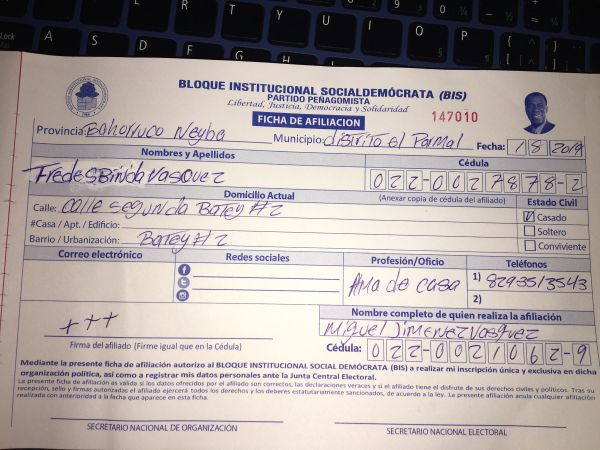 BLOQUE INSTITUCIONAL SOCIALDEMÓCRATA (BIS)
PARTIDO PEÑAGOMISTA
Libertad, Justicia, Democracia y Solidaridad
FICHA DE AFILIACION
147010
Provincia: Bahorruco Neyba Municipio: distrito el Palmal Fecha: 1/8/2019
Nombres y Apellidos Cédula
FredesBinda Vasquez 022-0027878-2
Domicilio Actual (Anexar copia de cédula del afiliado) Estado Civil
Calle: calle segunda Batey #2 Casado
#Casa / Apt. / Edificio: Soltero
Barrio / Urbanización: Batey #2 Conviviente
Correo electrónico Redes sociales Profesión/Oficio Teléfonos
Ama de casa 1) 8293513543
2)
Nombre completo de quien realiza la afiliación
+++ Miguel Jimenez Vasquez
Firma del afiliado (Firme igual que en la Cédula) Cédula: 022-0021062-9
Mediante la presente ficha de afiliación autorizo al BLOQUE INSTITUCIONAL SOCIAL DEMÓCRATA (BIS) a realizar mi inscripción única y exclusiva en dicha
organización política, así como a registrar mis datos personales ante la Junta Central Electoral.
La presente ficha de afiliación es válida si los datos ofrecidos por el afiliado son correctos, las declaraciones veraces y si el afiliado tiene el disfrute de sus derechos civiles y políticos. Tras su
recepción, sello y firmas autorizadas el afiliado ejercerá todos los derechos y los deberes estatutariamente sancionados, de acuerdo a la ley. La presente afiliación anula cualquier afiliación
realizada con anterioridad a la fecha que aparece en esta ficha.
SECRETARIO NACIONAL DE ORGANIZACIÓN SECRETARIO NACIONAL ELECTORAL